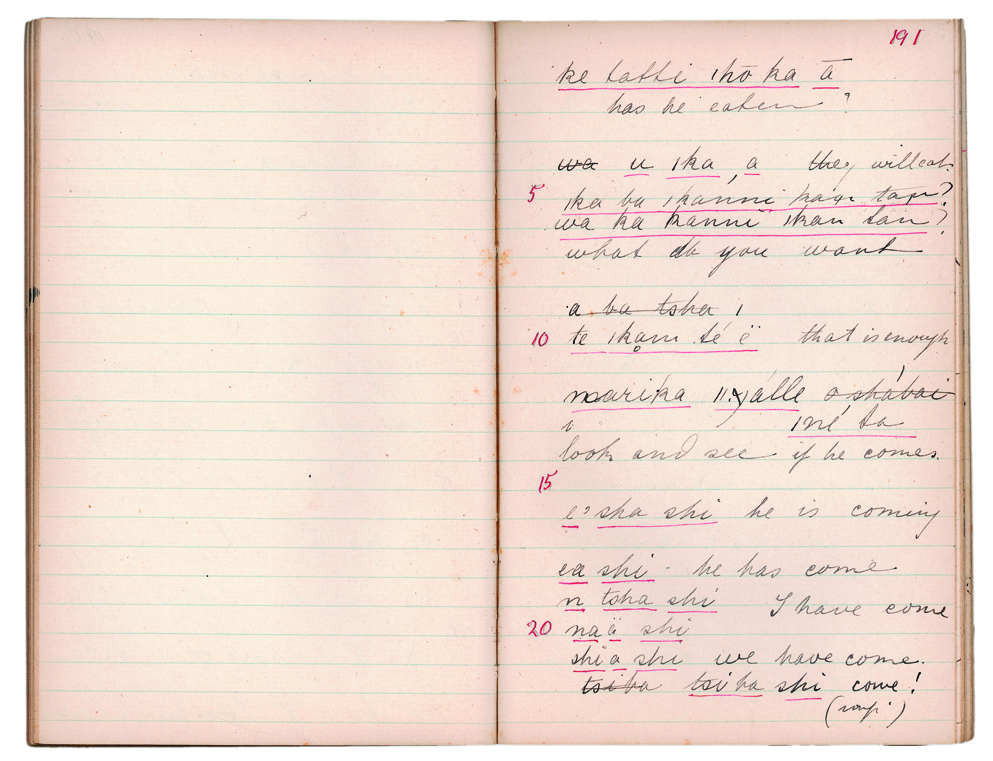 191
ke tatti ıhō ka ā
has he eaten ?
wa u ıka, a they will eat.
5
ıka ba ıkánni kaṇ taṇ?
wa ka kanni ıkan tan?
what do you want
a ba tsha ı
10 te ıkam té ë that is enough
marıka álle o shábai
ıné ta
look and see if he comes.
15
e' sha shi he is coming
ea shi - he has come
n tsha shi I have come
20 naä shi
shia shi we have come.
tsiba tsi ba shi come!